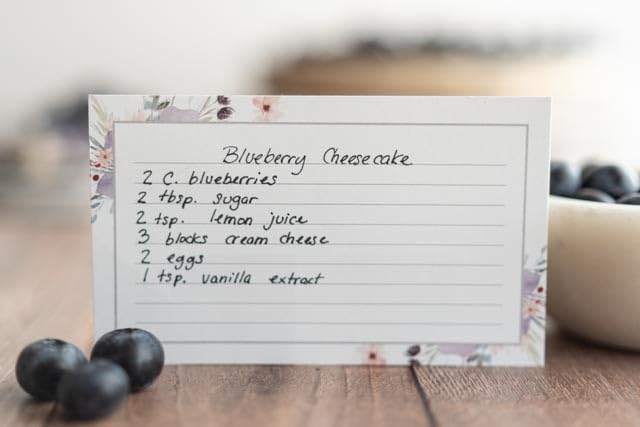 Blueberry Cheesecake
2 C. blueberries
2 tbsp. sugar
2 tsp. lemon juice
3 blocks cream cheese
2 eggs
1 tsp. vanilla extract